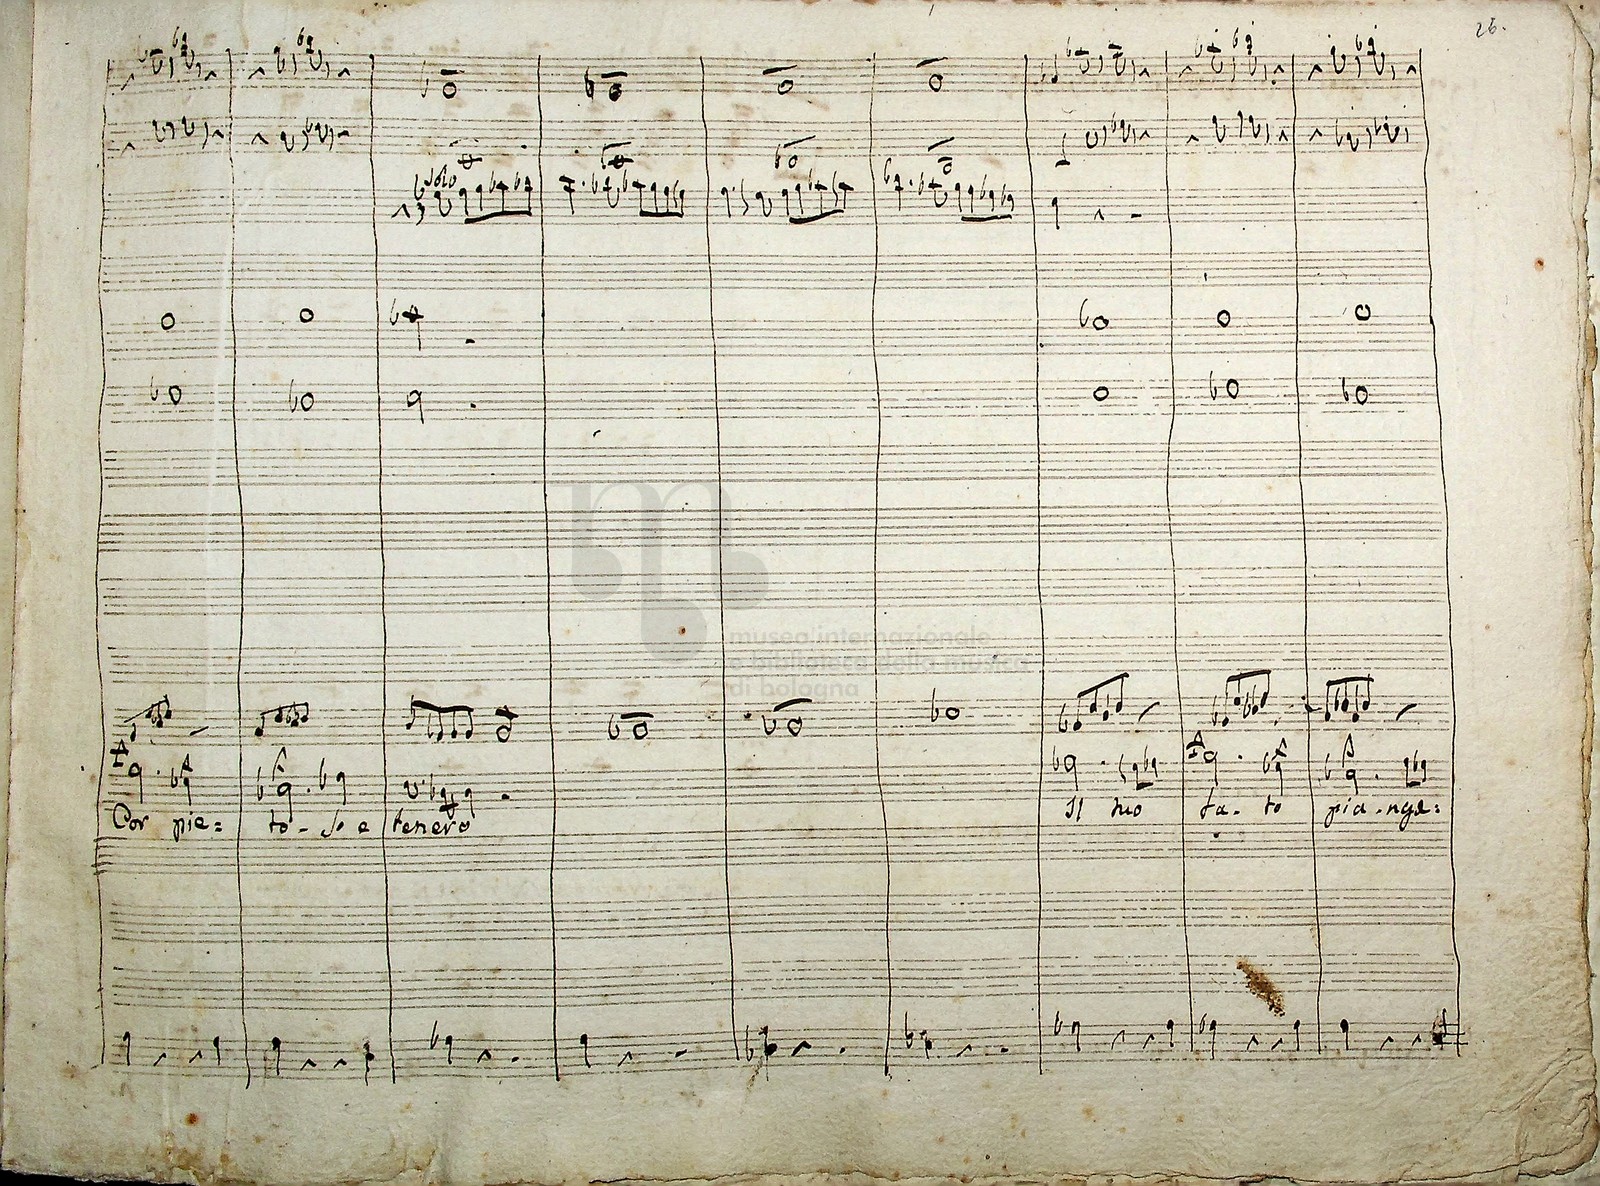 26.
solo
museo internazionale
e biblioteca della musica
di bologna
Cor pie= to-so e tenero Il mo fa-to pia-nge=